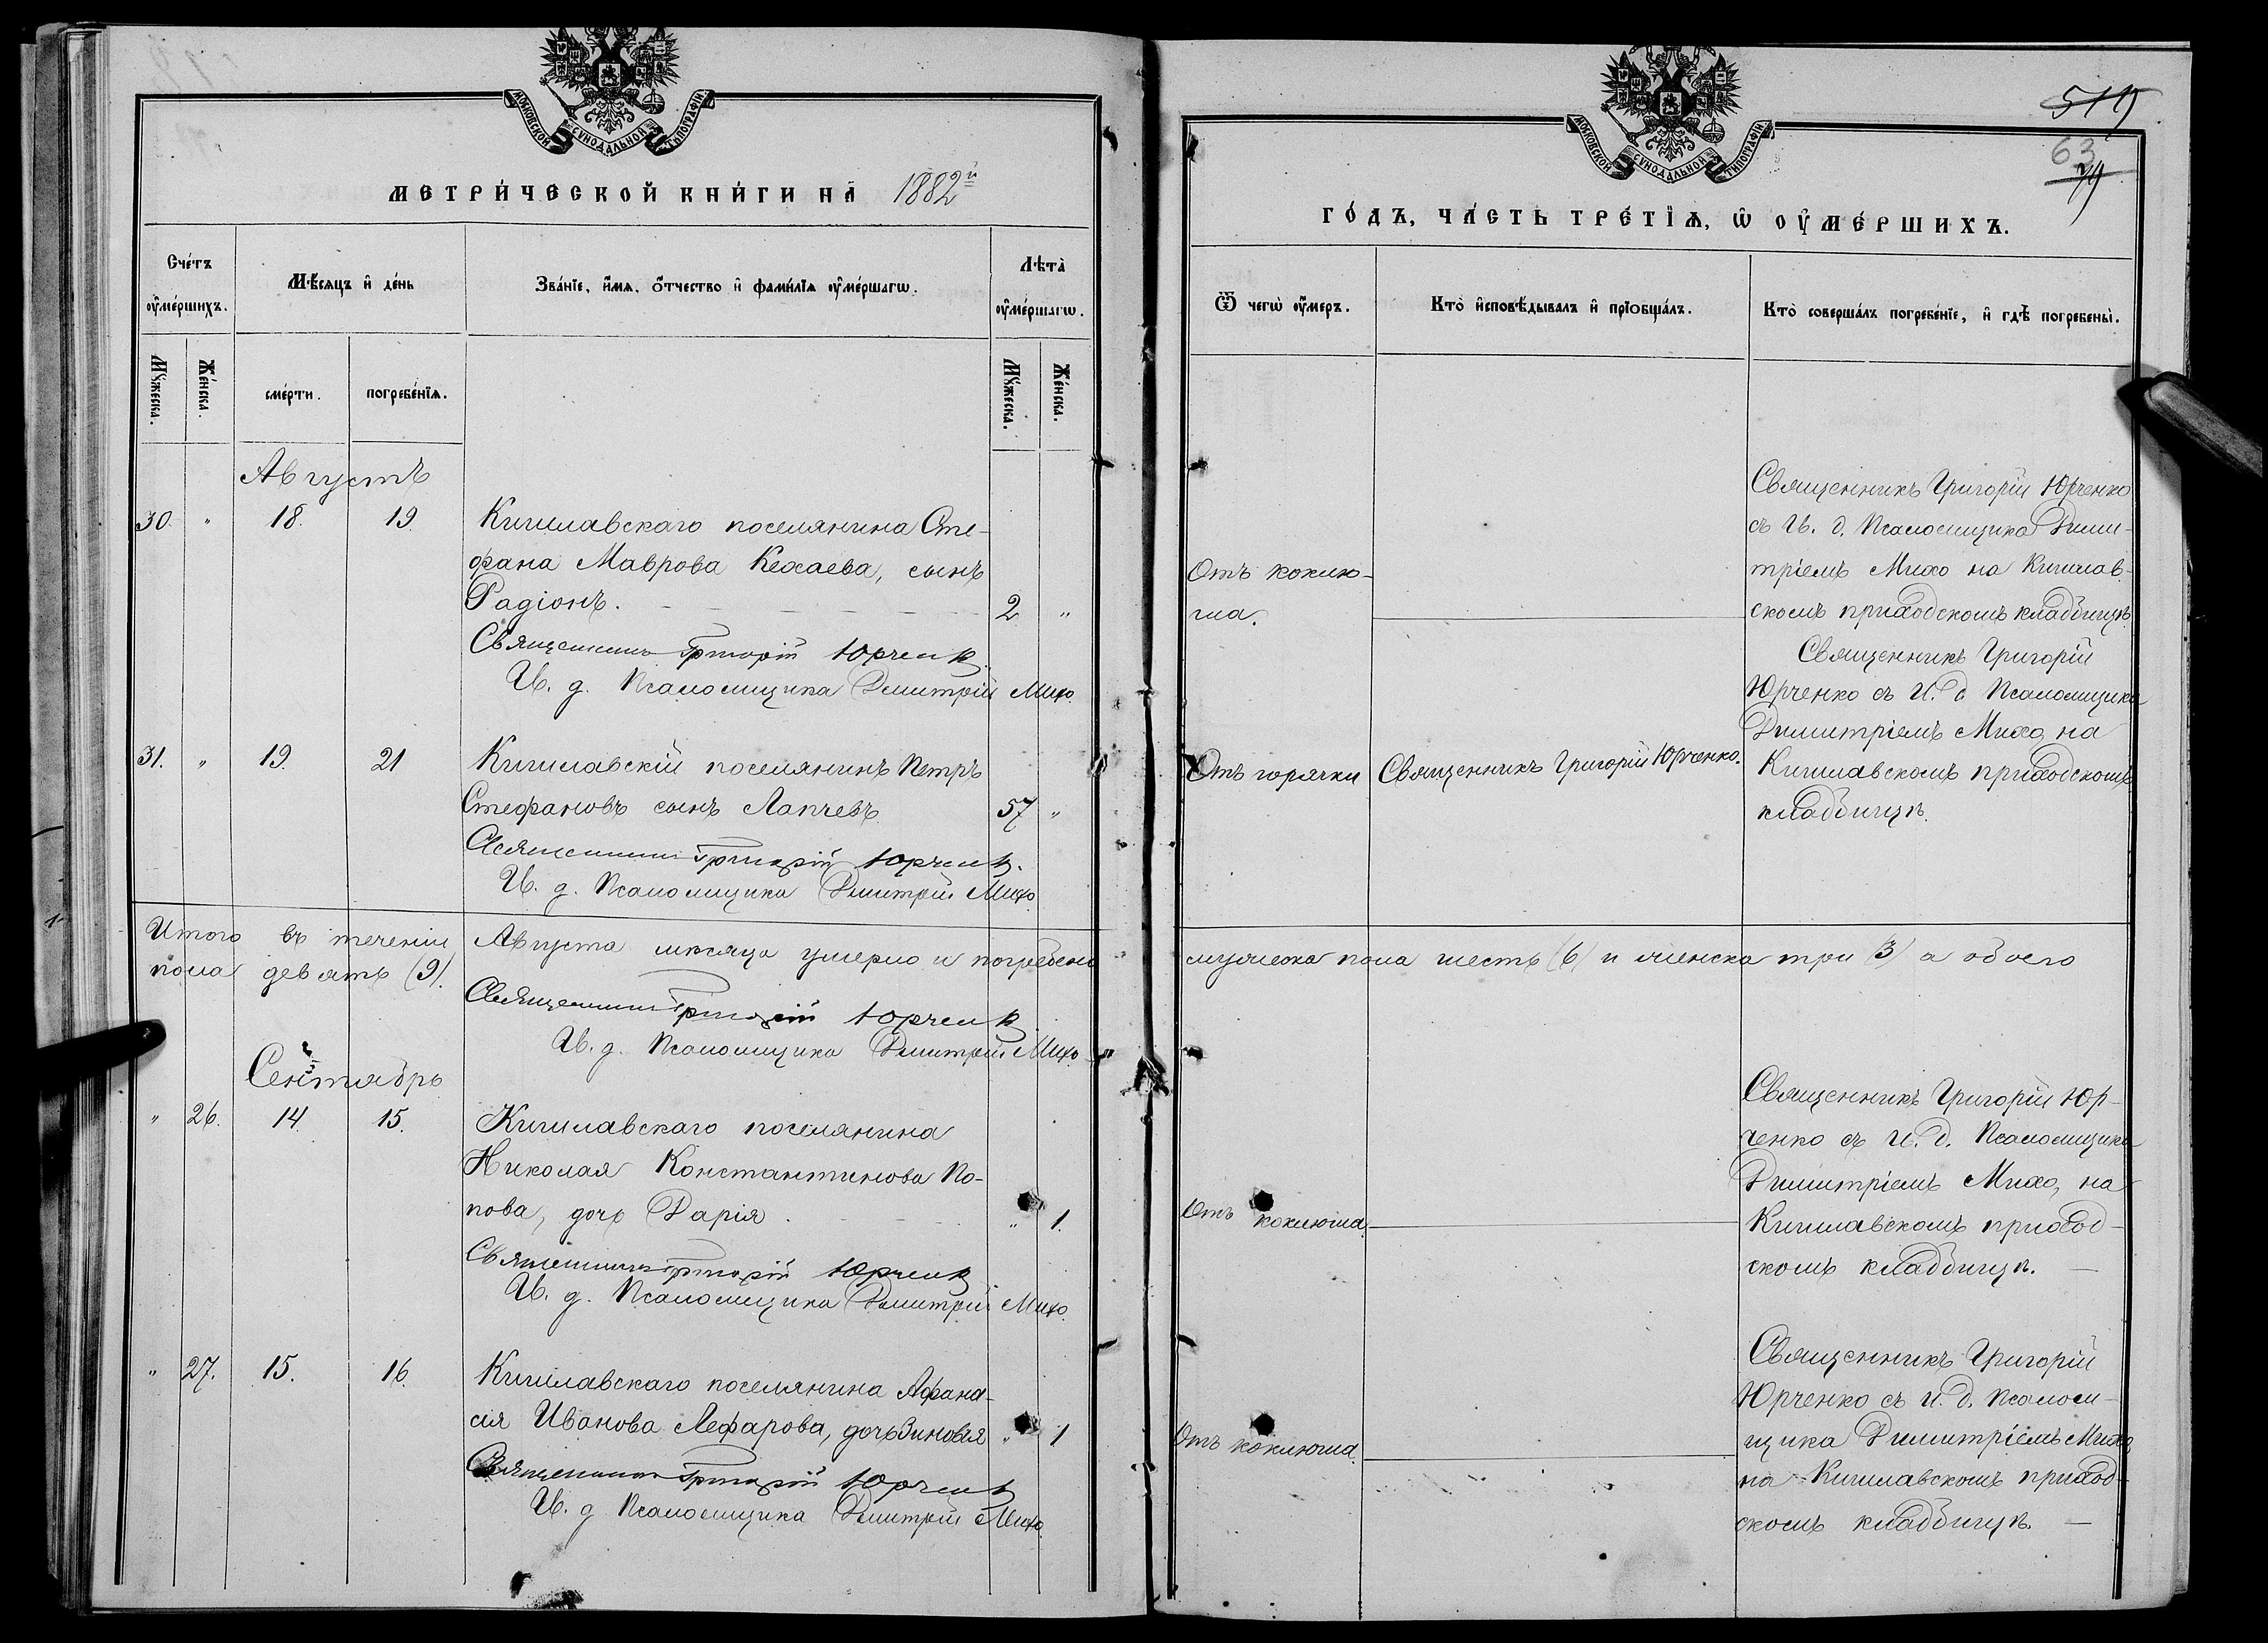 МОСКОВСКОЙ СѴНОДАЛЬНОЙ ТИПОГРАФІИ
МЕТРИ́ЧЕСКОЙ КНИ́ГИ НА 1882й
Сче́тъ оу҆ме́ршихъ.
Мѣ́сяцъ и҆ де́нь
Зва́нїе, и҆́мѧ, ѻ҆́тчество и҆ фами́лїѧ оу҆ме́ршагѡ.
Лѣ́та оу҆ме́ршагѡ.
Мꙋ́жеска.
Же́нска.
сме́рти.
погребе́нїѧ.
Мꙋ́жеска.
Же́нска.
Августъ
30. " 18. 19. Кишлавскаго поселянина Сте-
фана Маврова Кехаева, сынъ
Радіонъ. 2 "
Священникъ Григорій Юрченко
И. д. Псаломщика Дмитрій Михо.
31. " 19. 21 Кишлавскій поселянинъ Петръ
Стефановъ сынъ Лапчевъ 57 "
Священникъ Григорій Юрченко.
И. д. Псаломщика Дмитрій Михо
Итого въ теченіи Августа мѣсяца умерло и погребено
пола девять (9).
Священникъ Григорій Юрченко
И. д. Псаломщика Дмитрій Михо
Сентябрь
" 26. 14. 15. Кишлавскаго поселянина
Николая Константинова По-
пова, дочь Дарія. " 1.
Священникъ Григорій Юрченко
И. д. Псаломщика Дмитрій Михо.
" 27. 15. 16. Кишлавскаго поселянина Афана-
сія Иванова Лефарова, дочь Зиновія " 1
Священникъ Григорій Юрченко
И. д. Псаломщика Дмитрій Михо
МОСКОВСКОЙ СѴНОДАЛЬНОЙ ТИПОГРАФІИ
519
63
ГО́ДЪ, ЧА́СТЬ ТРЕ́ТЇѦ, Ѡ҆ ОУ҆МЕ́РШИХЪ.
Ѿ чегѡ̀ оу҆́меръ.
Кто̀ и҆сповѣ́дывалъ и҆ прїобща́лъ.
Кто̀ соверша́лъ погребе́нїе, и҆ гдѣ̀ погребены̀.
Отъ коклю-
ша.
Священникъ Григорій Юрченко
съ И. д. Псаломщика Дими-
тріемъ Михо на Кишлав-
скомъ приходскомъ кладбищѣ.
Отъ горячки
Священникъ Григорій Юрченко.
Священникъ Григорій
Юрченко съ И. д. Псаломщика
Димитріемъ Михо, на
Кишлавскомъ приходскомъ
кладбищѣ.
мужеска пола шесть (6) и женска три (3) а обоего
Отъ коклюша
Священникъ Григорій Юр-
ченко съ И. д. Псаломщика
Димитріемъ Михо, на
Кишлавскомъ приход-
скомъ кладбищѣ. —
Отъ коклюша
Священникъ Григорій
Юрченко съ И. д. Псалом-
щика Димитріемъ Михо,
на Кишлавскомъ приход-
скомъ кладбищѣ. —